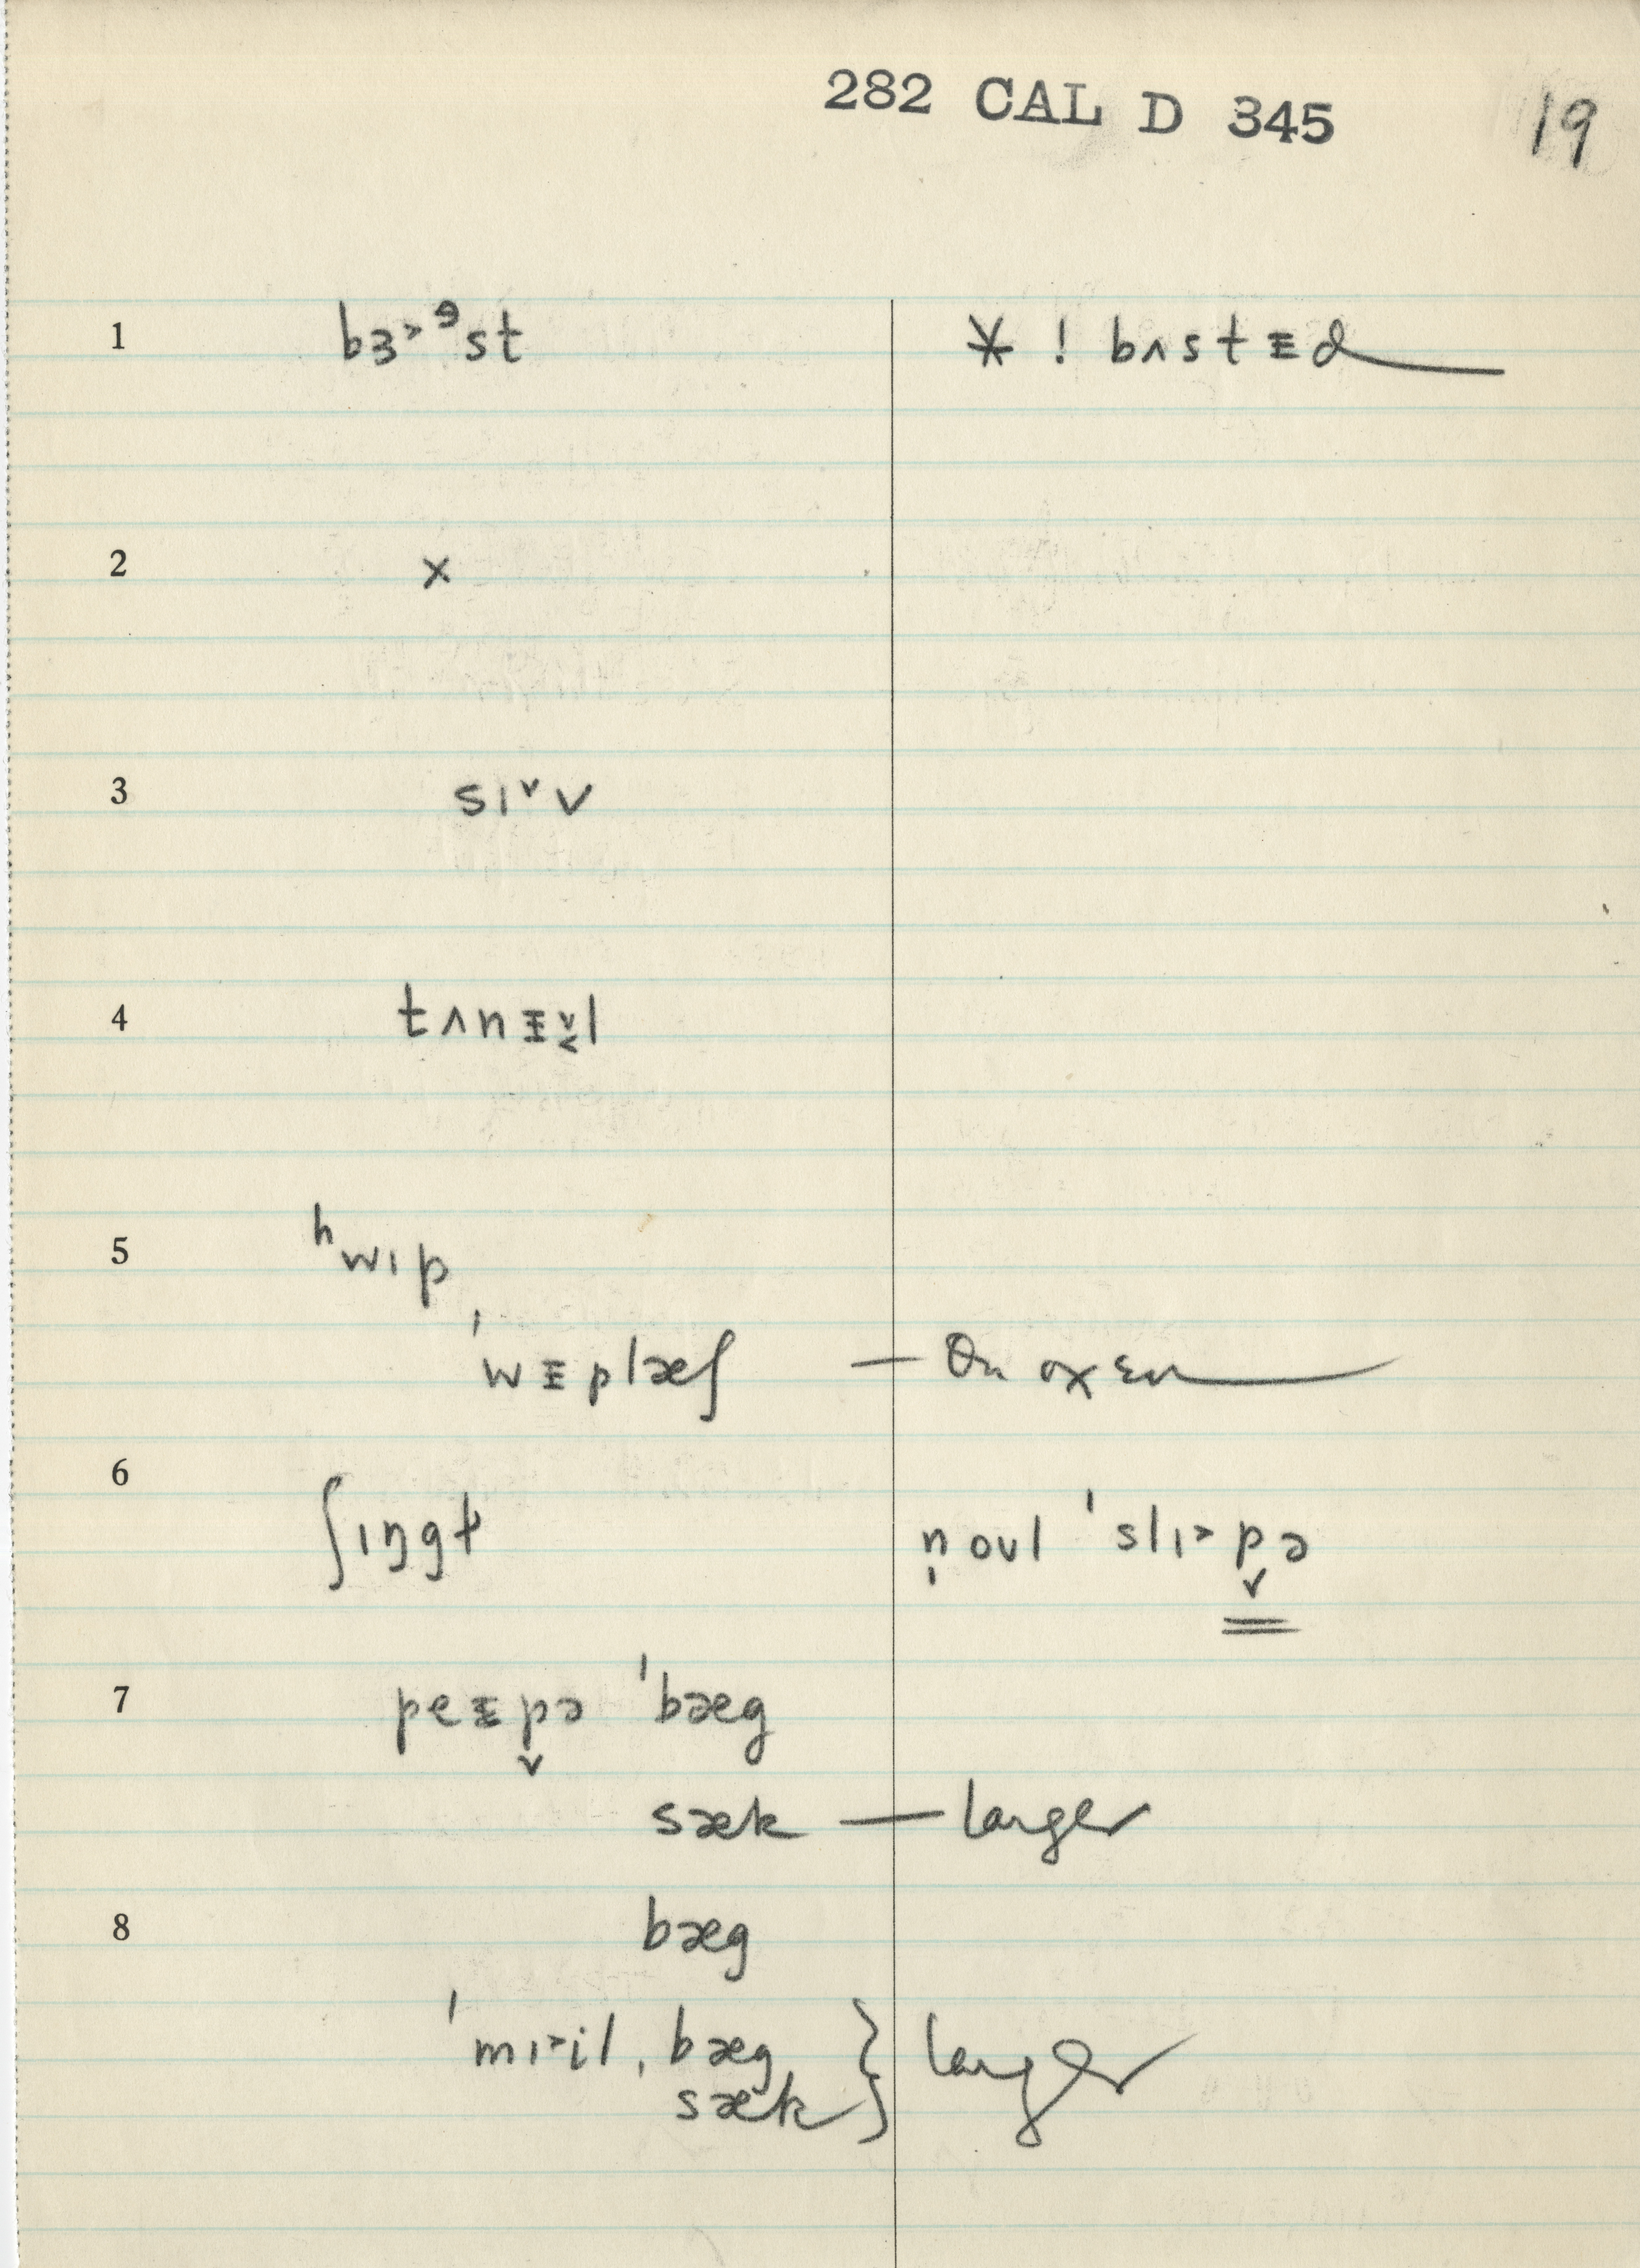 282 CAL D 345 19
1 bɜ˃ᵊst * ! bʌstᵻd
2 x
3 sɪ˅v
4 tʌnᵻ̬l
5 ʰwɪp
ˈwᵻplæʃ — On oxen
6 ʃɪŋgɫ n̩ oʊl ˈslɪ˃p̬ə
7 peᵻp̬ə ˈbæg
sæk — larger
8 bæg
ˈmɪ˃il ˌbæg } larger
sæk